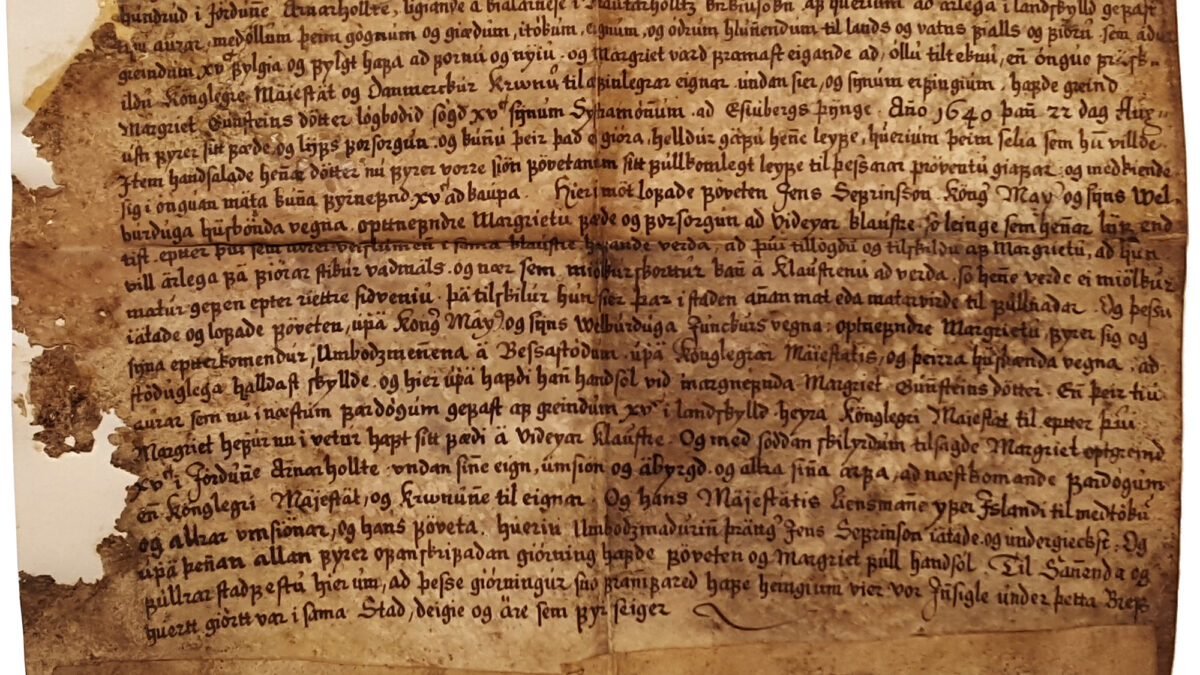 hundrud i Jördunne Arnarhollte, ligiande á Kialarnese i Sautarholltz kirkiusokn af huerium ad árlega i landskylld gefast
tiju aurar, med öllum þeim gögnum og giædum, itökum, eignum, og ödrum hlunendum til lands og vatns fialls og fióru sem ádur
greindum, xv fylgia og fylgt hafa ad fornu og nyiu. og Margriet vard framast eigande ad, öllu tilteknu, en óngue
ildu Könglegre Mäiestät og Danmerkur Krwnu til afinlegrar eignar undan sier, og synum erfingium, hafde greind
Margriet Gunsteins dötter lögbodid sögd xv synum ad Esiubergs þynge. Año 1640 þan 22 dag Aug-
usti fyrer sitt fæde, og lijfs forsorgun. og kunu þeir þad ei giöra, helldur gäfu hene leyfe, huerium þeim selia sem hun villde
Item handsalade henar dötter nu fyrer vorre siön fövetanum sitt fullkomlegt leyfe til þessarar pröventu giafar. og medkiende
sig i önguan máta kuna fyrnefnd xv ad kaupa. Hier i möt lofade föveten Jens Sefrinsson Köng Mayt og syns Wel-
burduga hüsbönda vegna. opttnefndre Margrietu fæde og forsorgun ad Videyar klaustre, so leinge sem henar lijf end
tist. eptter þui sem adrer veislumen i sama klaustre hafande verda, ad þui tillögdu og tilskildu af Margrietu, ad hun
vill ärlega fä fiörar stikur vadmäls. og nær sem miölkurskorttur kan ä Klaustrenu ad verda. so hene verde ei miölkur
matur gefen epter riettre sidveniu. þä tilskilur hun sier þar i staden añan mat eda matarvirde til fullnadar. Og þessu
iätade og lofade föveten, upä Köng Mayt og syns Welburduga Junckurs vegna: optnefndre Margrietu, fyrer sig og
syna eptterkomendur, Umbodzmenena ä Bessastödum. upä Könglegrar Mäiestatis, og þeirra husbænda vegna. ad
stöduglega halldast skyllde. og hier upä hafdi han handsöl vid margnefnda Margriet Gunsteins dötter. En þeir tiu
aurar sem nu i næstum fardögum gefast af greindum xv i landskylld heyra Könglegri Maiestat til eptter þui
Margriet hefur nu i vetur haft sitt fædi ä Videyar Klaustre. Og med söddan skilyrdum tilsagde Margriet optgreind
xv i Jördunne Arnarhollte. undan sine eign, umsion og äbyrgd. og allra sina arfa, ad næstkomande fardögum
en Könglegri Mäjestät, og Krwnune til eignar. Og hans Mäjestätis Liensmane yfer Islandi til medtöku
og allrar vmsiönar, og hans föveta. hueriu Umbodzmadurin fräng Jens Sefrinson iätade og undergieckst. Og
upä þenan allan fyrer ofanskrifadan giörning hafde föveten og Margriet full handsöl Til Sanenda og
fullrar stadfestu hier um, ad þesse giörningur suo framfared hafe hengium vier vor Insigle under þetta Bref
huertt giörtt var i sama Stad, deigie og äre sem fyr seiger